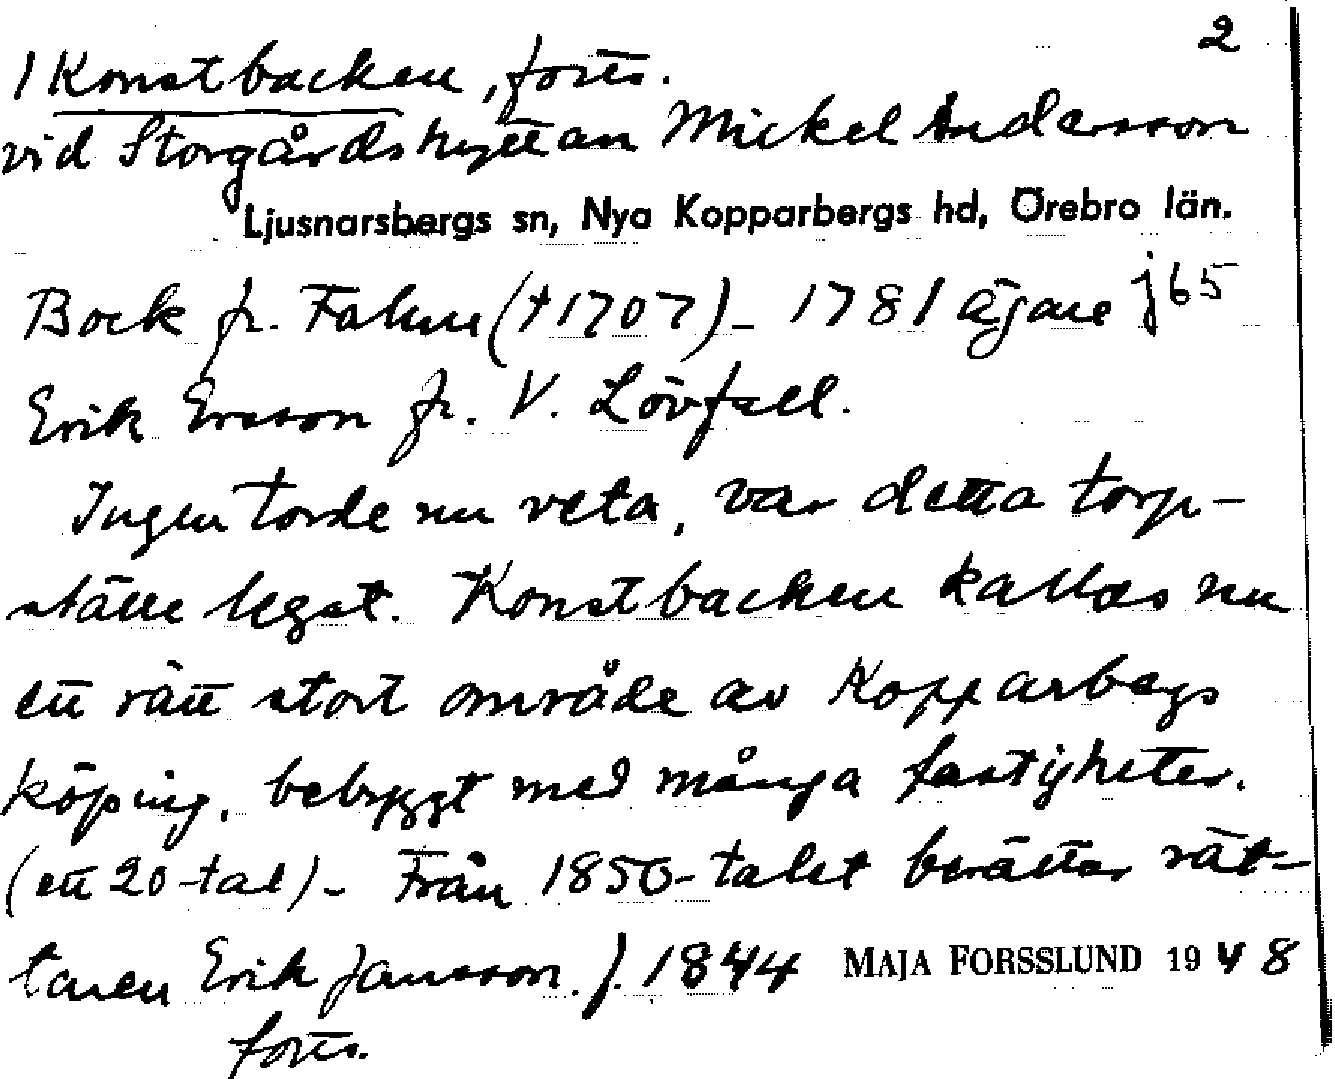 2
1 Konstbacken, forts.
vid Storgårdshyttan Mickel Andersson
Ljusnarsbergs sn, Nya Kopparbergs hd, Örebro län.
Bock fr. Falun († 1707) - 1781 ägare j65
Erik Ersson fr. V. Lövfall.
Ingen torde nu veta, var detta torp-
ställe legat. Konstbacken kallas nu
ett rätt stort område av Kopparbergs
köping, bebyggt med många fastigheter.
(ett 20-tal) - Från 1850-talet berättar rät-
taren Erik Jansson f. 1844 MAJA FORSSLUND 1948
forts.